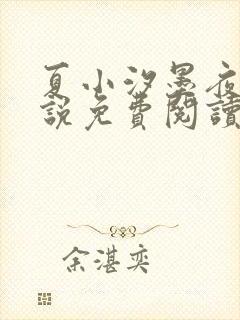 夏小汐墨夜
說免費閱讀
余湛奕